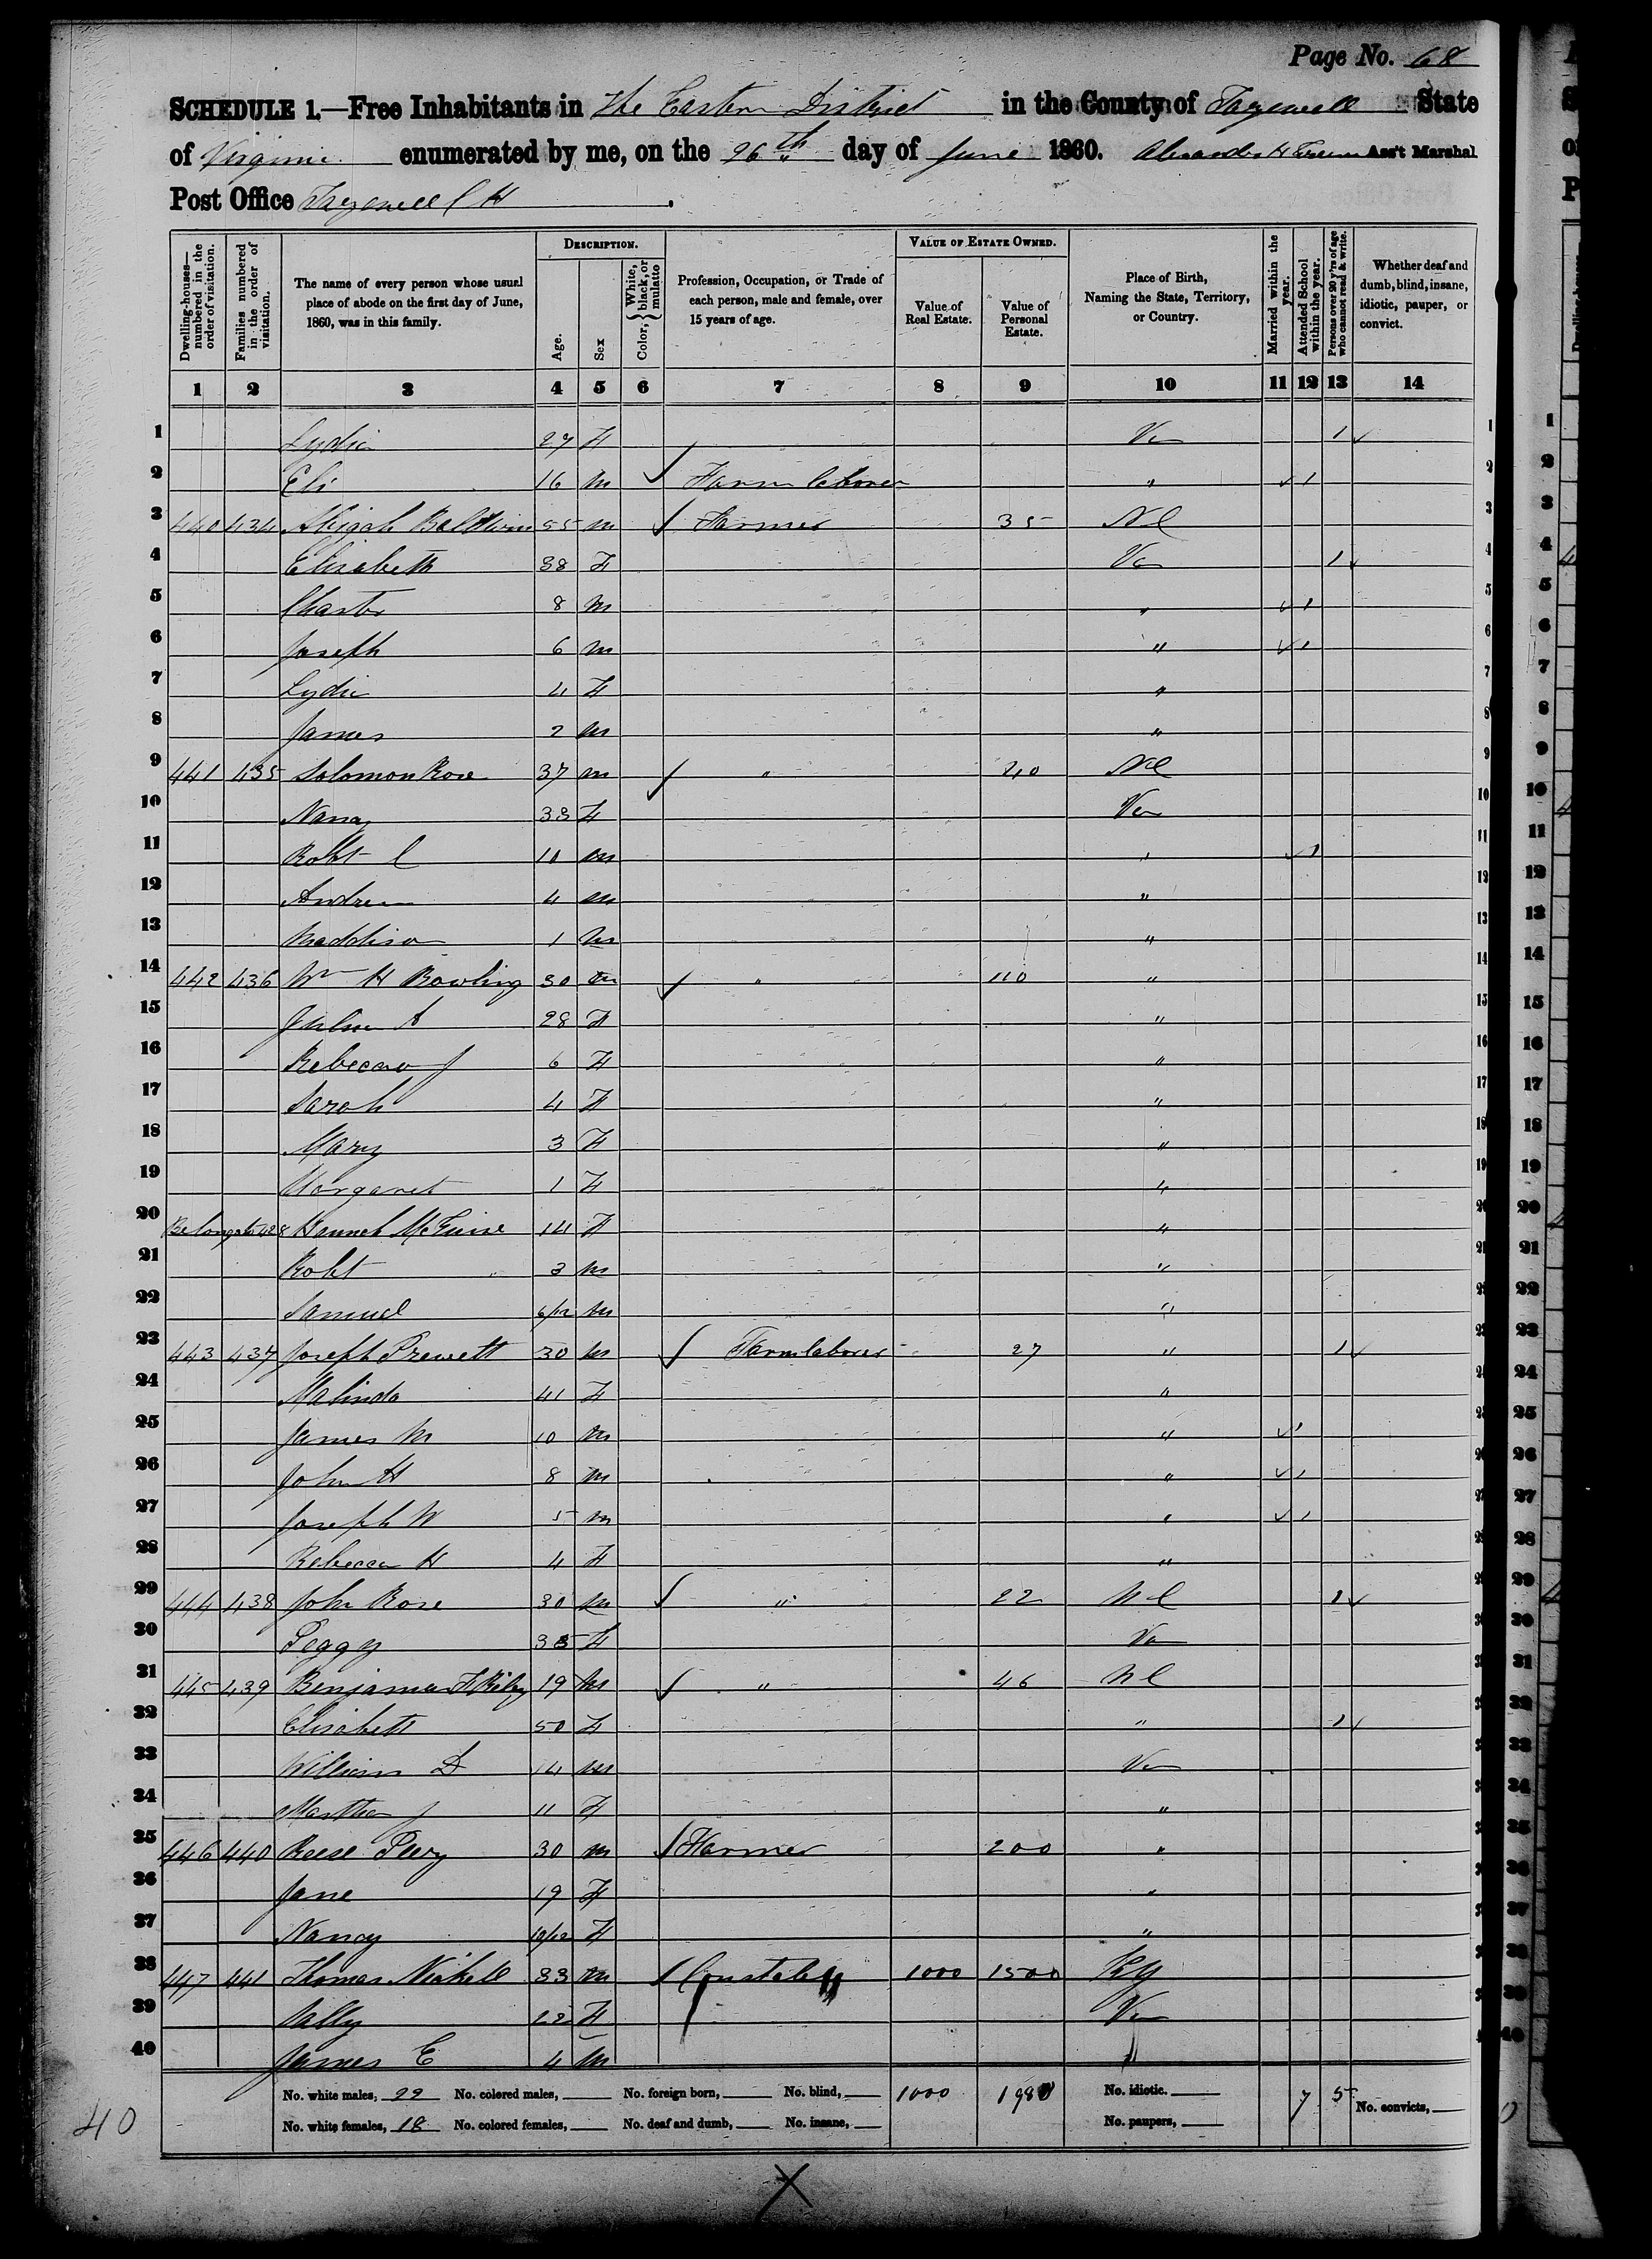 Page No. 68
SCHEDULE 1.—Free Inhabitants in The Eastern District in the County of Tazewell State
of Virginia enumerated by me, on the 26th day of June 1860. Alexander H Ass't Marshal
Post Office Tazewell C H
Dwelling-houses—numbered in the order of visitation.
Families numbered in the order of visitation.
The name of every person whose usual place of abode on the first day of June, 1860, was in this family.
DESCRIPTION.
Age.
Sex
Color, { White, black, or mulatto
Profession, Occupation, or Trade of each person, male and female, over 15 years of age.
VALUE OF ESTATE OWNED.
Value of Real Estate.
Value of Personal Estate.
Place of Birth, Naming the State, Territory, or Country.
Married within the year.
Attended School within the year.
Persons over 20 y'rs of age who cannot read & write.
Whether deaf and dumb, blind, insane, idiotic, pauper, or convict.
1 2 3 4 5 6 7 8 9 10 11 12 13 14
1 Lydia 27 F Va 1 ✓ 1
2 Eli 16 m ✓ Farm laborer " ✓ 1 2
3 440 434 Abijah Baldwin 55 m ✓ Farmer 35 NC 3
4 Elizabeth 38 F Va 1 ✓ 4
5 8 m " ✓ 1 5
6 Joseph 6 m " ✓ 1 6
7 Lydia 4 F " 7
8 James 2 m " 8
9 441 435 Solomon Rose 37 m ✓ " 40 NC 9
10 Nancy 33 F Va 10
11 Robt C 10 m " ✓ 1 11
12 Andrew 4 m " 12
13 Maddison 1 m " 13
14 442 436 Wm H Bowling 30 m ✓ " 110 " 14
15 A 28 F " 15
16 Rebecca J 6 F " 16
17 Sarah 4 F " 17
18 Mary 3 F " 18
19 Margaret 1 F " 19
20 Belongs to 428 Hannah McGuire 14 F "
21 Robt 3 m "
22 Samuel 6/12 m "
23 443 437 Joseph Prewett 30 m ✓ Farm laborer 27 " 1 ✓
24 Malinda 41 F "
25 James M 10 m " ✓ 1
26 John H 8 m " ✓ 1
27 Joseph W 5 m " ✓ 1
28 Rebecca H 4 F "
29 444 438 John Rose 30 m ✓ " 22 NC 1 ✓
30 Peggy 35 F Va
31 445 439 Benjamin F 19 m ✓ " 46 NC
32 Elizabeth 50 F " 1 ✓
33 William D 14 m Va
34 Martha J 11 F "
35 446 440 Reese Peery 30 m ✓ Farmer 200 "
36 Jane 19 F "
37 Nancy 10/12 F "
38 447 441 Thomas Nickell 33 m ✓ Constable 1000 1500 KY
39 Sally 22 F Va
40 James E 4 m "
No. white males, 22 No. colored males, No. foreign born, No. blind, 1000 1980 No. idiotic. 7 5 No. convicts,
No. white females, 18 No. colored females, No. deaf and dumb, No. insane, No. paupers,
40